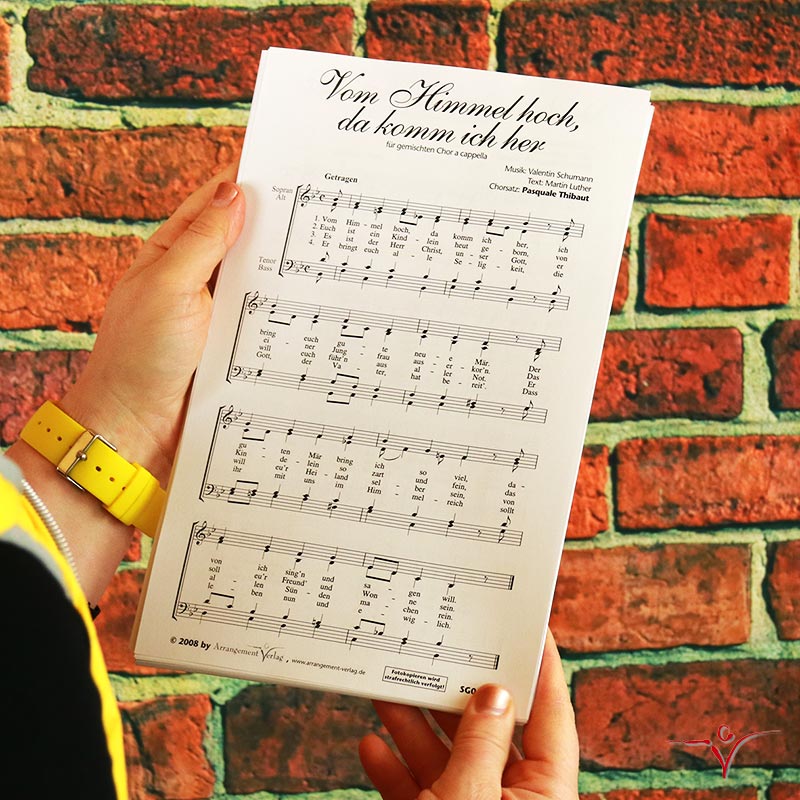 Vom Himmel hoch,
da komm ich her
für gemischten Chor a cappella
Musik: Valentin Schumann
Text: Martin Luther
Chorsatz: Pasquale Thibaut
Getragen
Sopran
Alt
1. Vom Him – mel hoch, da komm ich her, ich
2. Euch ist ein Kind – lein heut ge – born, von
3. Es ist der Herr Christ, un – ser Gott, er
4. Er bringt euch al – le Se – lig – keit, die
Tenor
Bass
bring euch gu – te neu – e Mär. Der
ei – ner Jung – frau aus – er – kor'n. Das
will euch führ'n aus al – ler Not. Er
Gott, der Va – ter, hat be – reit'. Dass
gu – ten Mär bring ich so viel, da–
Kin – de – lein so zart und fein, das
will eu'r Hei – land sel – ber sein, von
ihr mit uns im Him – mel – reich sollt
von ich sing'n und sa – gen will.
soll eu'r Freud' und Won – ne sein.
al – len Sün – den ma – chen rein.
le – ben nun und e – wig – lich.
© 2008 by Arrangement Verlag, www.arrangement-verlag.de
Fotokopieren wird
strafrechtlich verfolgt!